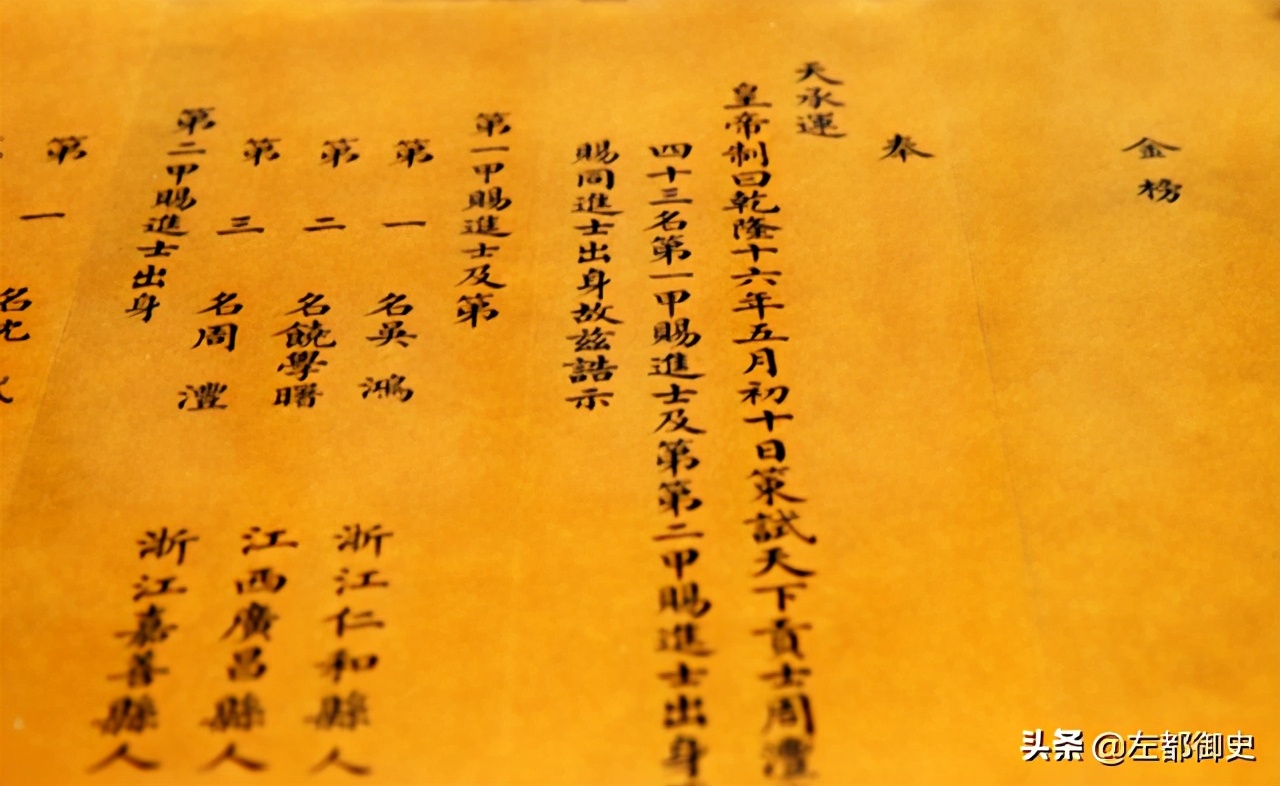 金榜
奉
天承運
皇帝制曰乾隆十六年五月初十日策試天下貢士周澧
四十三名第一甲賜進士及第第二甲賜進士出身
賜同進士出身故茲誥示
第一甲賜進士及第
第一名吳鴻 浙江仁和縣人
第二名饒學曙 江西廣昌縣人
第三名周澧 浙江嘉善縣人
第二甲賜進士出身
第一名沈
头条 @左都御史